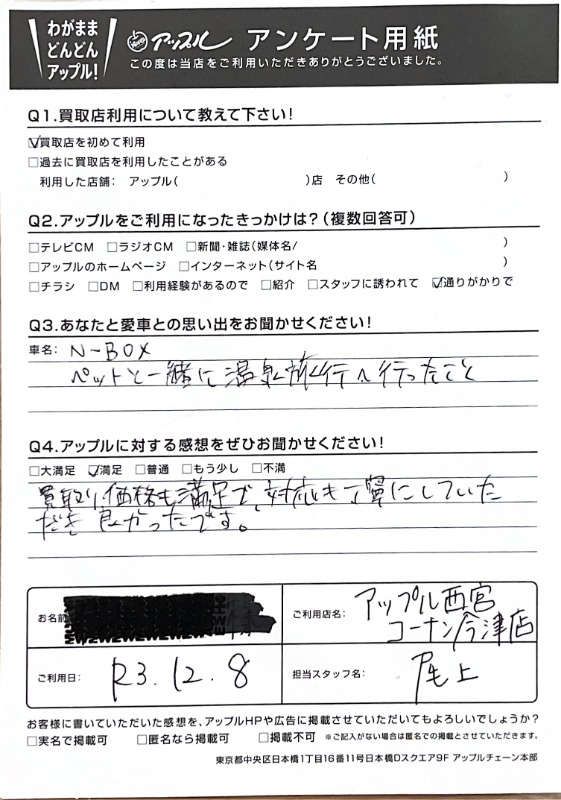 わがまま
どんどん
アップル!
アップル アンケート用紙
この度は当店をご利用いただきありがとうございました。
Q1.買取店利用について教えて下さい!
☑買取店を初めて利用
□過去に買取店を利用したことがある
利用した店舗: アップル( )店 その他( )
Q2.アップルをご利用になったきっかけは?(複数回答可)
□テレビCM □ラジオCM □新聞・雑誌(媒体名/ )
□アップルのホームページ □インターネット(サイト名 )
□チラシ □DM □利用経験があるので □紹介 □スタッフに誘われて ☑通りがかりで
Q3.あなたと愛車との思い出をお聞かせください!
車名: N-BOX
ペットと一緒に温泉旅行へ行ったこと
Q4.アップルに対する感想をぜひお聞かせください!
□大満足 ☑満足 □普通 □もう少し □不満
買取り価格も満足で、対応も丁寧にしていた
だき良かったです。
お名前 様
ご利用店名: アップル西宮
コーナン今津店
ご利用日: R3.12.8
担当スタッフ名: 尾上
お客様に書いていただいた感想を、アップルHPや広告に掲載させていただいてもよろしいでしょうか?
□実名で掲載可 □匿名なら掲載可 □掲載不可 ※ご記入がない場合は匿名での掲載とさせていただきます。
東京都中央区日本橋1丁目16番11号日本橋Dスクエア9F アップルチェーン本部